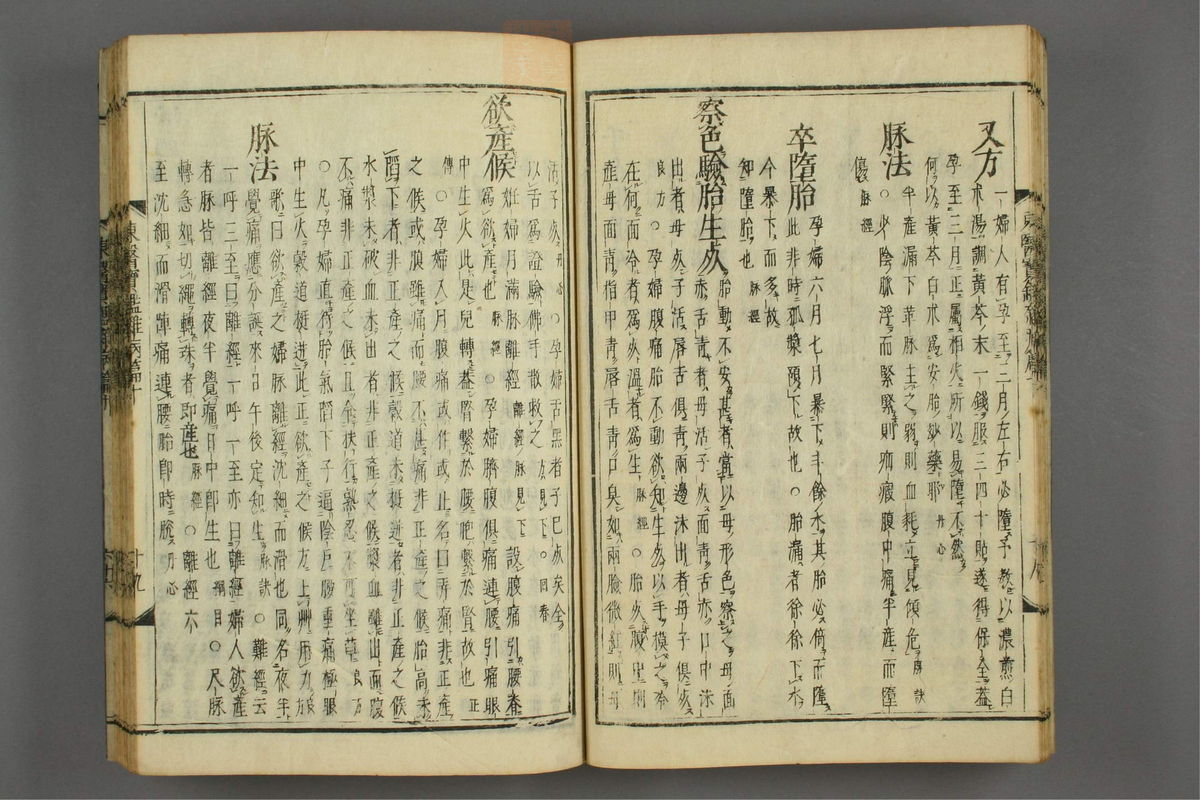 又方
一婦人有孕至三月左右必墮予教以濃煎白
朮湯調黃芩末一錢服三四十貼遂得保全蓋
孕至三月正屬相火所以易墮不然
何以黃芩白朮爲安胎妙藥耶 丹心
脉法
半產漏下革脉主之弱則血耗立見傾危 脉訣
○少陰脉浮而緊緊則疝瘕腹中痛半產而墮
傷 脉經
卒墮胎
孕婦六月七月暴下斗餘水其胎必倚而墮
此非時孤漿預下故也○胎漏者徐徐下水
今暴下而多故
知墮胎也 脉經
察色驗胎生死
胎動不安甚者當以母形色察之母面
赤舌靑者母活子死面靑舌赤口中沫
出者母死子活唇舌俱靑兩邊沫出者母子俱死
良方○孕婦腹痛胎不動欲知生死以手摸之
在何面冷者爲死溫者爲生 脉經○胎死腹中則
產母面靑指甲靑唇舌靑口臭如兩臉微紅則母
活子死 丹心○孕婦舌黑者子已死矣全
以舌爲證驗佛手散救之 方見下○回春
欲產候
妊婦月滿脉離經 離經脉見下 設腹痛引腰脊
爲欲產也 脉經○孕婦臍腹俱痛連腰引痛眼
中生火此是兒轉蓋腎繫於腰胞繫於腎故也 正
傳○孕婦入月腹痛或作或止名曰弄痛非正產
之候或腹雖痛而腰不甚痛非正產之候胎高未
䧟下者非正產之候穀道未挺迸者非正產之候
水漿未破血未出者非正產之候漿血雖出而腹
不痛非正產之候且令扶行熟忍不可坐草 良方
○凡孕婦直待胎氣䧟下子逼陰戶腰重痛極眼
中生火穀道挺迸此正欲產之候方上艸用力 良方
脉法
歌曰欲產之婦脉離經沈細而滑也同名夜半
覺痛應分誕來日午後定知生 脉訣○難經云
一呼三至曰離經一呼一至亦曰離經婦人欲產
者脉皆離經夜半覺痛日中卽生也 綱目○尺脉
轉急如切繩轉珠者卽產也 脉經○離經六
至沈細而滑陣痛連腰胎卽時脫 丹心